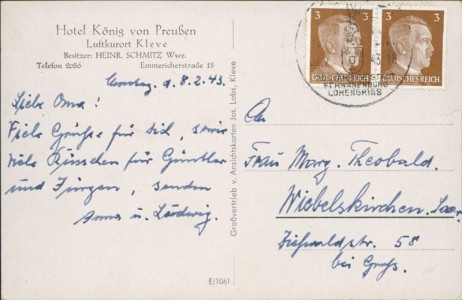 Hotel König von Preußen
Luftkurort Kleve
Besitzer: HEINR. SCHMITZ Wwe.
Telefon 2055 Emmericherstraße 15
d. 8.2.43.
Liebe Oma!
Viele Grüße für Dich, sowie
viele Küsschen für Günther
und Jürgen, senden
Anna u. Ludwig.
Großvertrieb v. Ansichtskarten Jos. Labs, Kleve
E/1061
3 3
DEUTSCHES REICH DEUTSCHES REICH
SCHWANENBURG
LOHENGRINS
An
Frau Marg. Theobald.
Wiebelskirchen. Saar.
58
bei Groß.